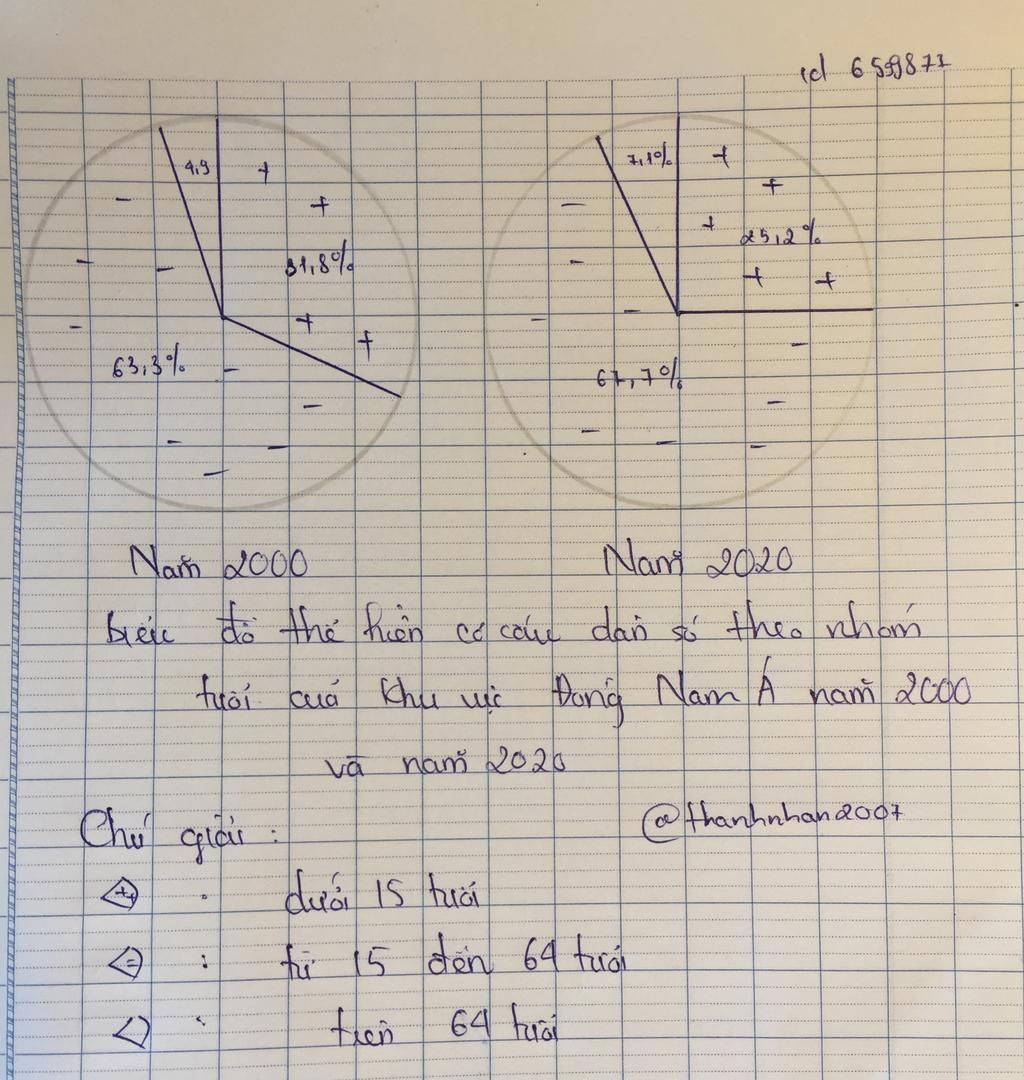 id 659877
4,9
31,8%
63,3%
7,1%
25,2%
67,7%
Năm 2000
Năm 2020
biểu đồ thể hiện cơ cấu dân số theo nhóm
tuổi của khu vực Đông Nam Á năm 2000
và năm 2020
@thanhnhan2007
Chú giải :
dưới 15 tuổi
: từ 15 đến 64 tuổi
: trên 64 tuổi